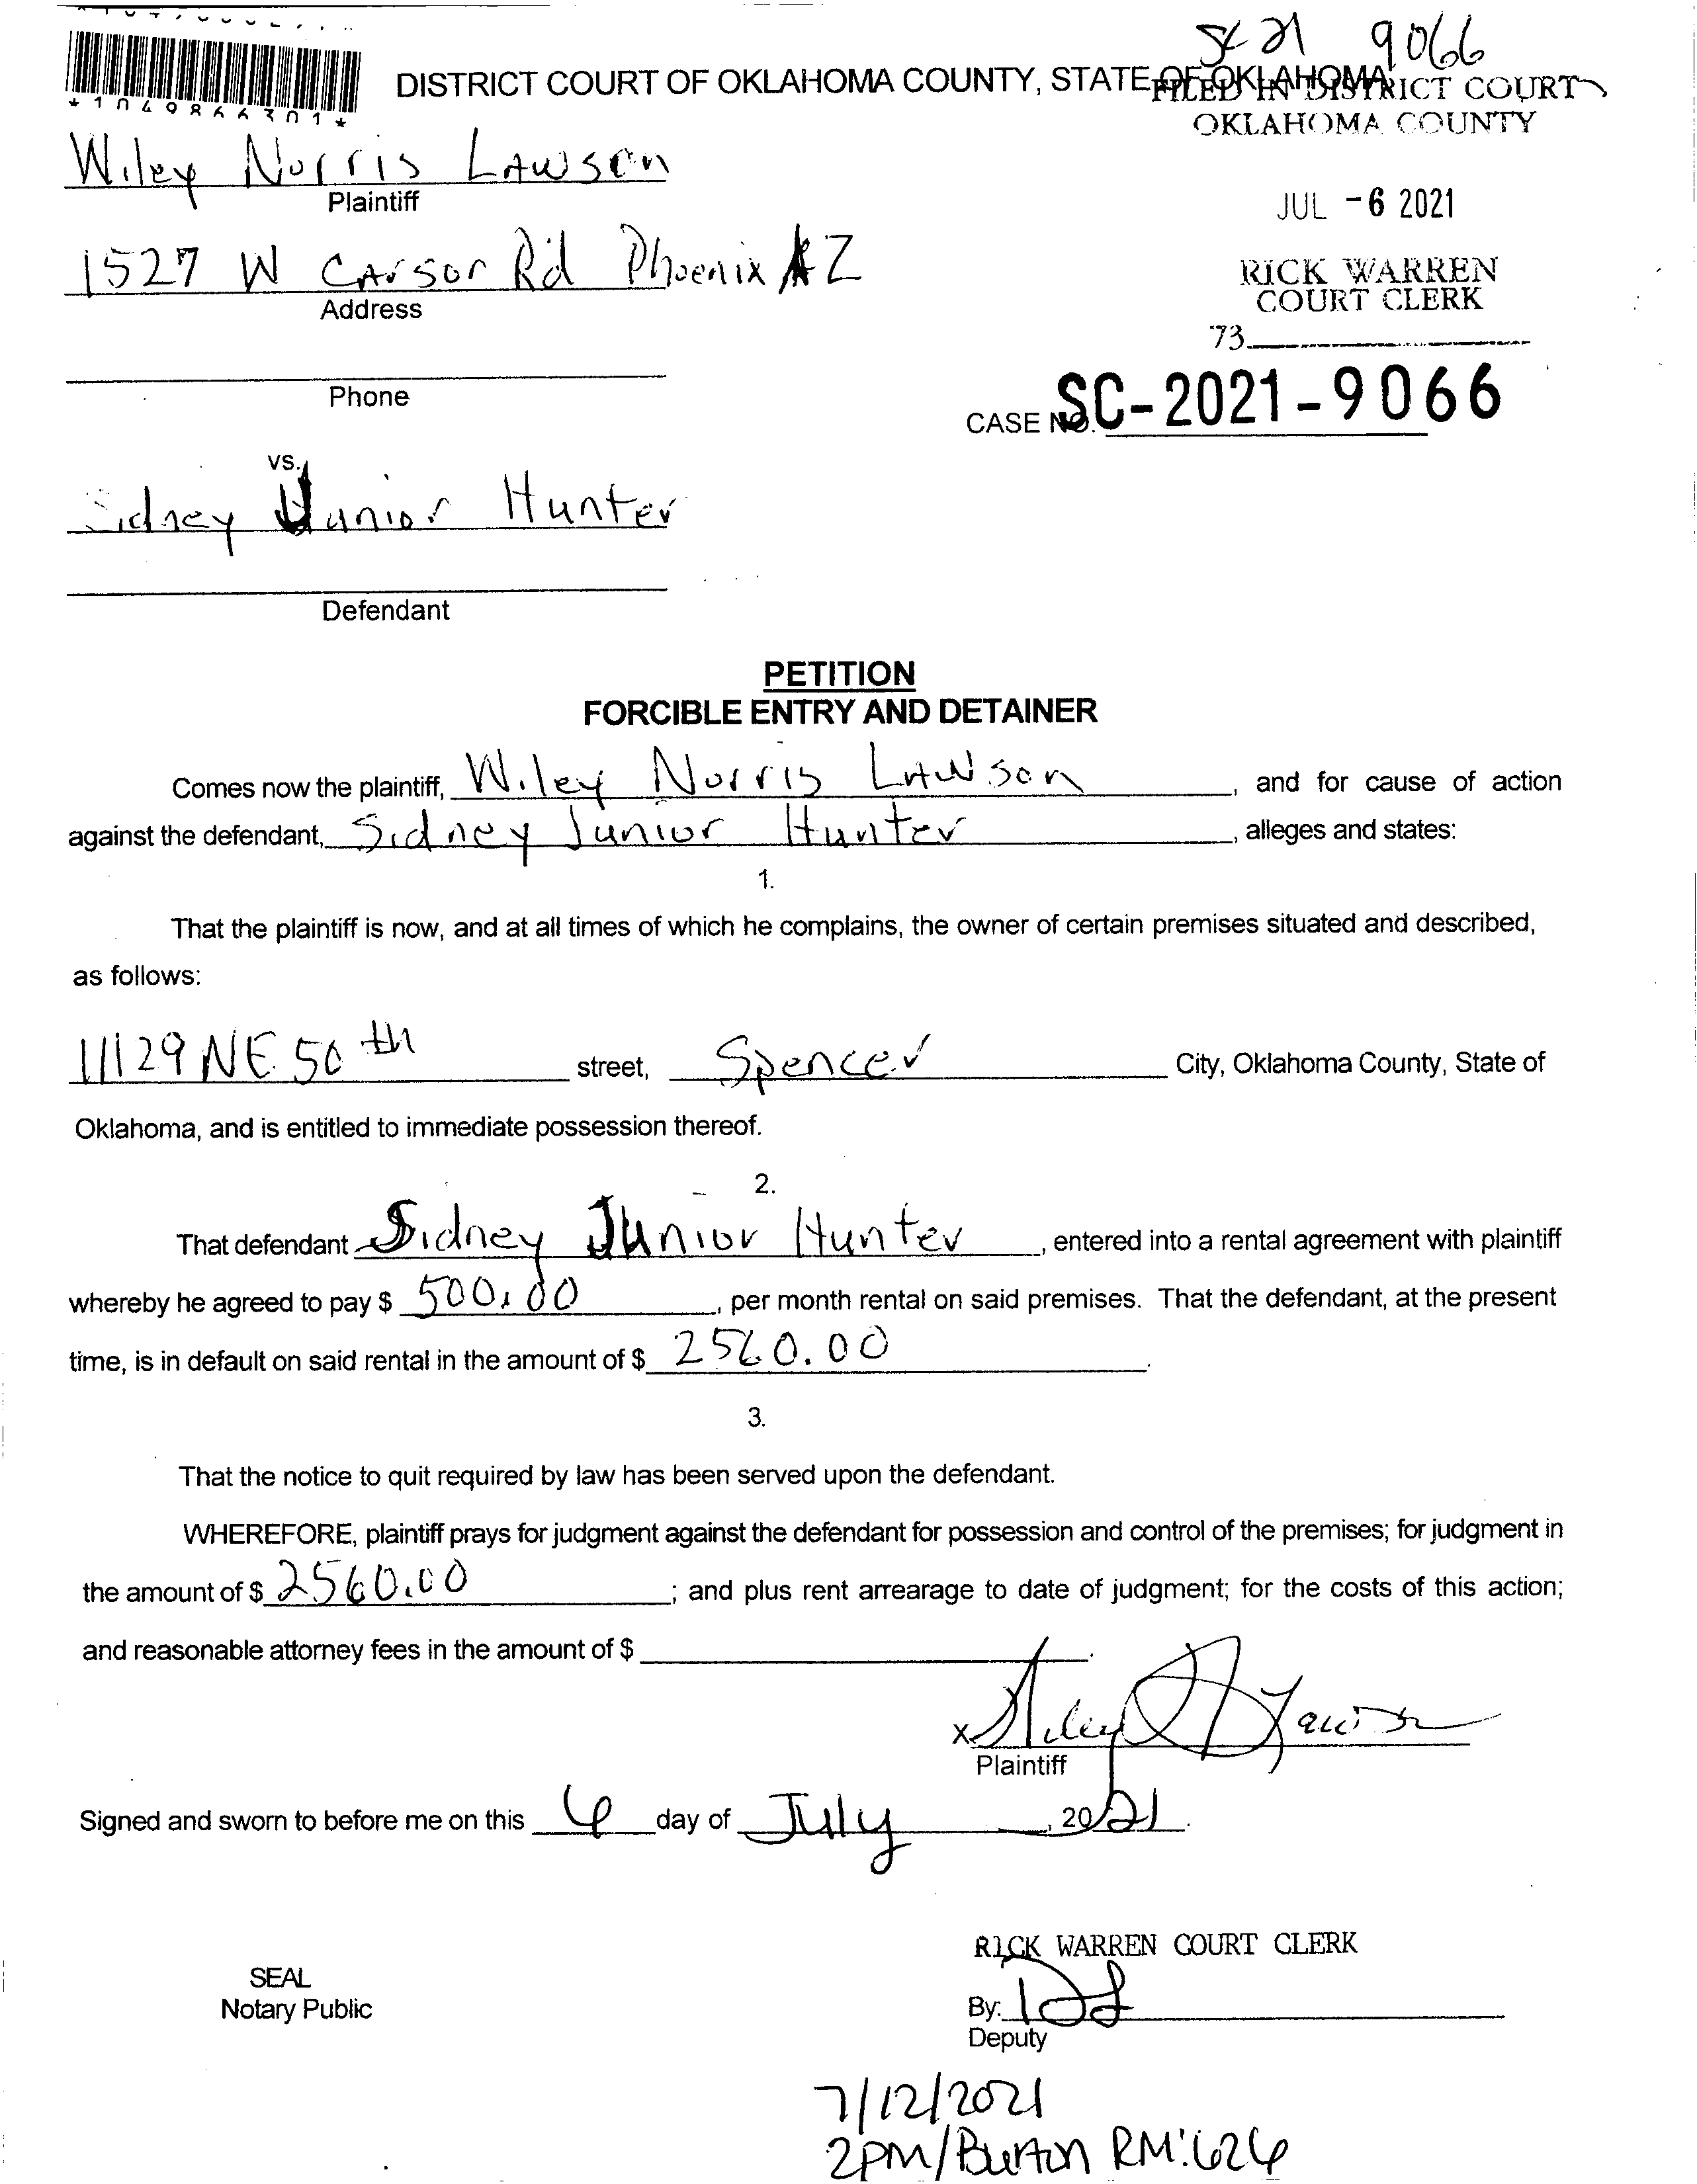 SC 21 9066
*1049866301*
DISTRICT COURT OF OKLAHOMA COUNTY, STATE OF OKLAHOMA
FILED IN DISTRICT COURT
OKLAHOMA COUNTY
Wiley Norris Lawson
Plaintiff
JUL -6 2021
1527 W Carson Rd Phoenix AZ
Address
RICK WARREN
COURT CLERK
73
Phone
CASE NO. SC-2021-9066
vs.
Sidney Junior Hunter
Defendant
PETITION
FORCIBLE ENTRY AND DETAINER
Comes now the plaintiff, Wiley Norris Lawson, and for cause of action
against the defendant, Sidney Junior Hunter, alleges and states:
1.
That the plaintiff is now, and at all times of which he complains, the owner of certain premises situated and described,
as follows:
11129 NE 50th street, Spencer City, Oklahoma County, State of
Oklahoma, and is entitled to immediate possession thereof.
2.
That defendant Sidney Junior Hunter, entered into a rental agreement with plaintiff
whereby he agreed to pay $ 500.00, per month rental on said premises. That the defendant, at the present
time, is in default on said rental in the amount of $ 2560.00.
3.
That the notice to quit required by law has been served upon the defendant.
WHEREFORE, plaintiff prays for judgment against the defendant for possession and control of the premises; for judgment in
the amount of $ 2560.00; and plus rent arrearage to date of judgment; for the costs of this action;
and reasonable attorney fees in the amount of $ .
x Wiley N Lawson
Plaintiff
Signed and sworn to before me on this 6 day of July, 2021.
RICK WARREN COURT CLERK
SEAL
Notary Public
By:
Deputy
7/12/2021
2PM/Burton RM:626